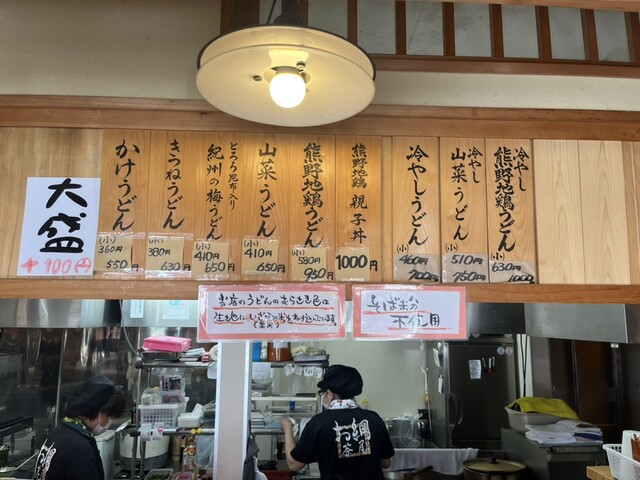 大盛
+100円
かけうどん
(小)
360円
550円
きつねうどん
(小)
380円
630円
とろろ昆布入り
紀州の梅うどん
(小)
410円
650円
山菜うどん
(小)
410円
650円
熊野地鶏うどん
(小)
580円
950円
熊野地鶏 親子丼
1000円
冷やしうどん
(小)
460円
700円
冷やし
山菜うどん
(小)
510円
750円
冷やし
熊野地鶏うどん
(小)
630円
1000円
当店のうどんのむらさき色は
生地にいざなみ米をねり込んでいます。
(黒米)
そば粉
不使用
お綱
茶屋